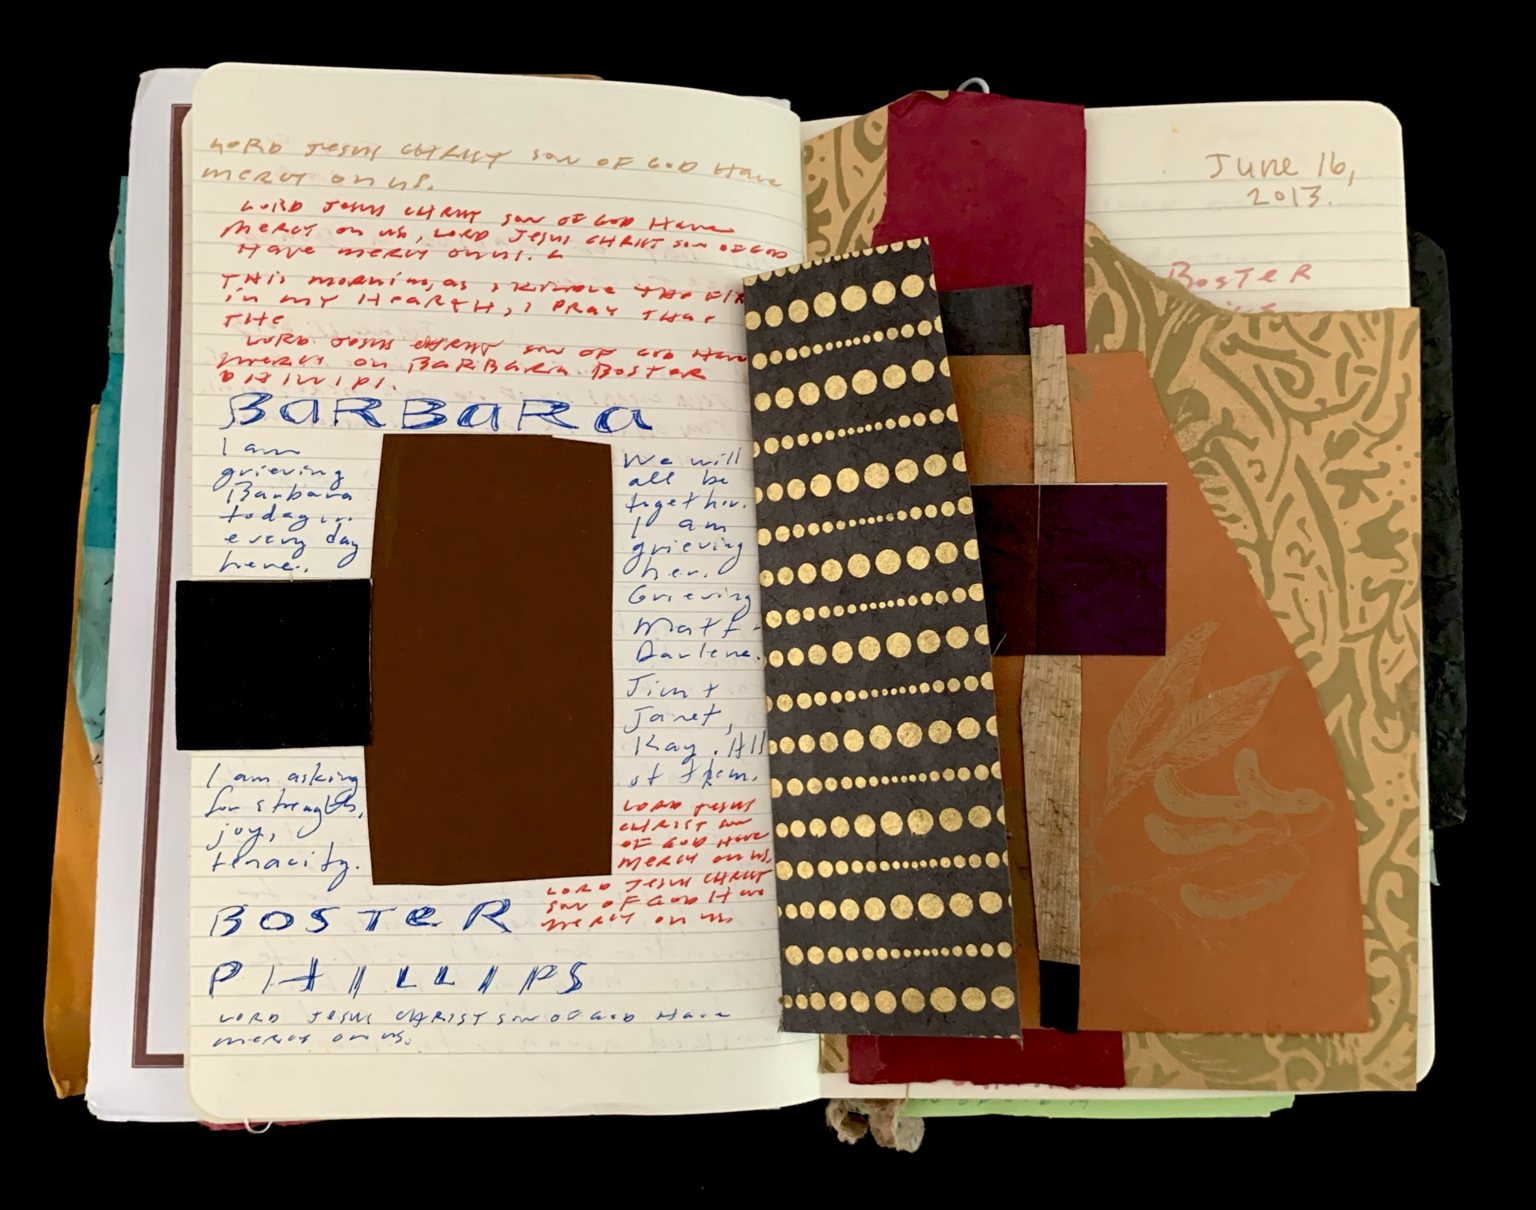 LORD JESUS CHRIST SON OF GOD HAVE
MERCY ON US.
LORD JESUS CHRIST SON OF GOD HAVE
MERCY ON US, LORD JESUS CHRIST SON OF GOD
HAVE MERCY ON US.
THIS MORNING, AS I KINDLE THE
IN MY HEARTH, I PRAY THAT
THE
LORD JESUS CHRIST SON OF GOD HAVE
MERCY ON BARBARA BOSTER
BARBARA
I am
grieving
Barbara
today...
every day
here..
I am asking
for strength,
joy,
tenacity.
We will
all be
together.
I am
grieving
her.
Grieving
Matt +
Darlene.
Jim +
Janet,
Kay. All
of them.
LORD JESUS
CHRIST SON
OF GOD HAVE
MERCY ON US.
LORD JESUS CHRIST
SON OF GOD HAVE
MERCY ON US
BOSTER
PHILLIPS
LORD JESUS CHRIST SON OF GOD HAVE
MERCY ON US.
June 16,
2013.
BOSTER